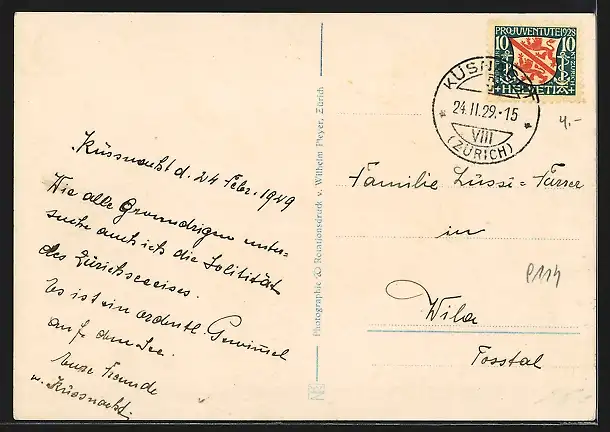 PRO JUVENTUTE 1928
10 10
HELVETIA
KÜSNACHT
24.II.29.-15
VIII
(ZÜRICH)
4.-
Küssnacht d. 24 Febr. 1929
Wie alle unter-
suche auch ich die Solitität
des Zürichseeeises.
Es ist ein ordentl. Gewimsel
auf dem See.
Eure Freunde
v. Küssnacht.
Photographie & Rotationsdruck v. Wilhelm Pleyer, Zürich
Familie Lüssi = Furrer
in
P114
Wila
Tosstal